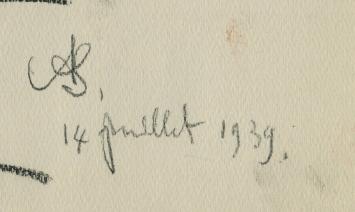 AB.
14 juillet 1939.